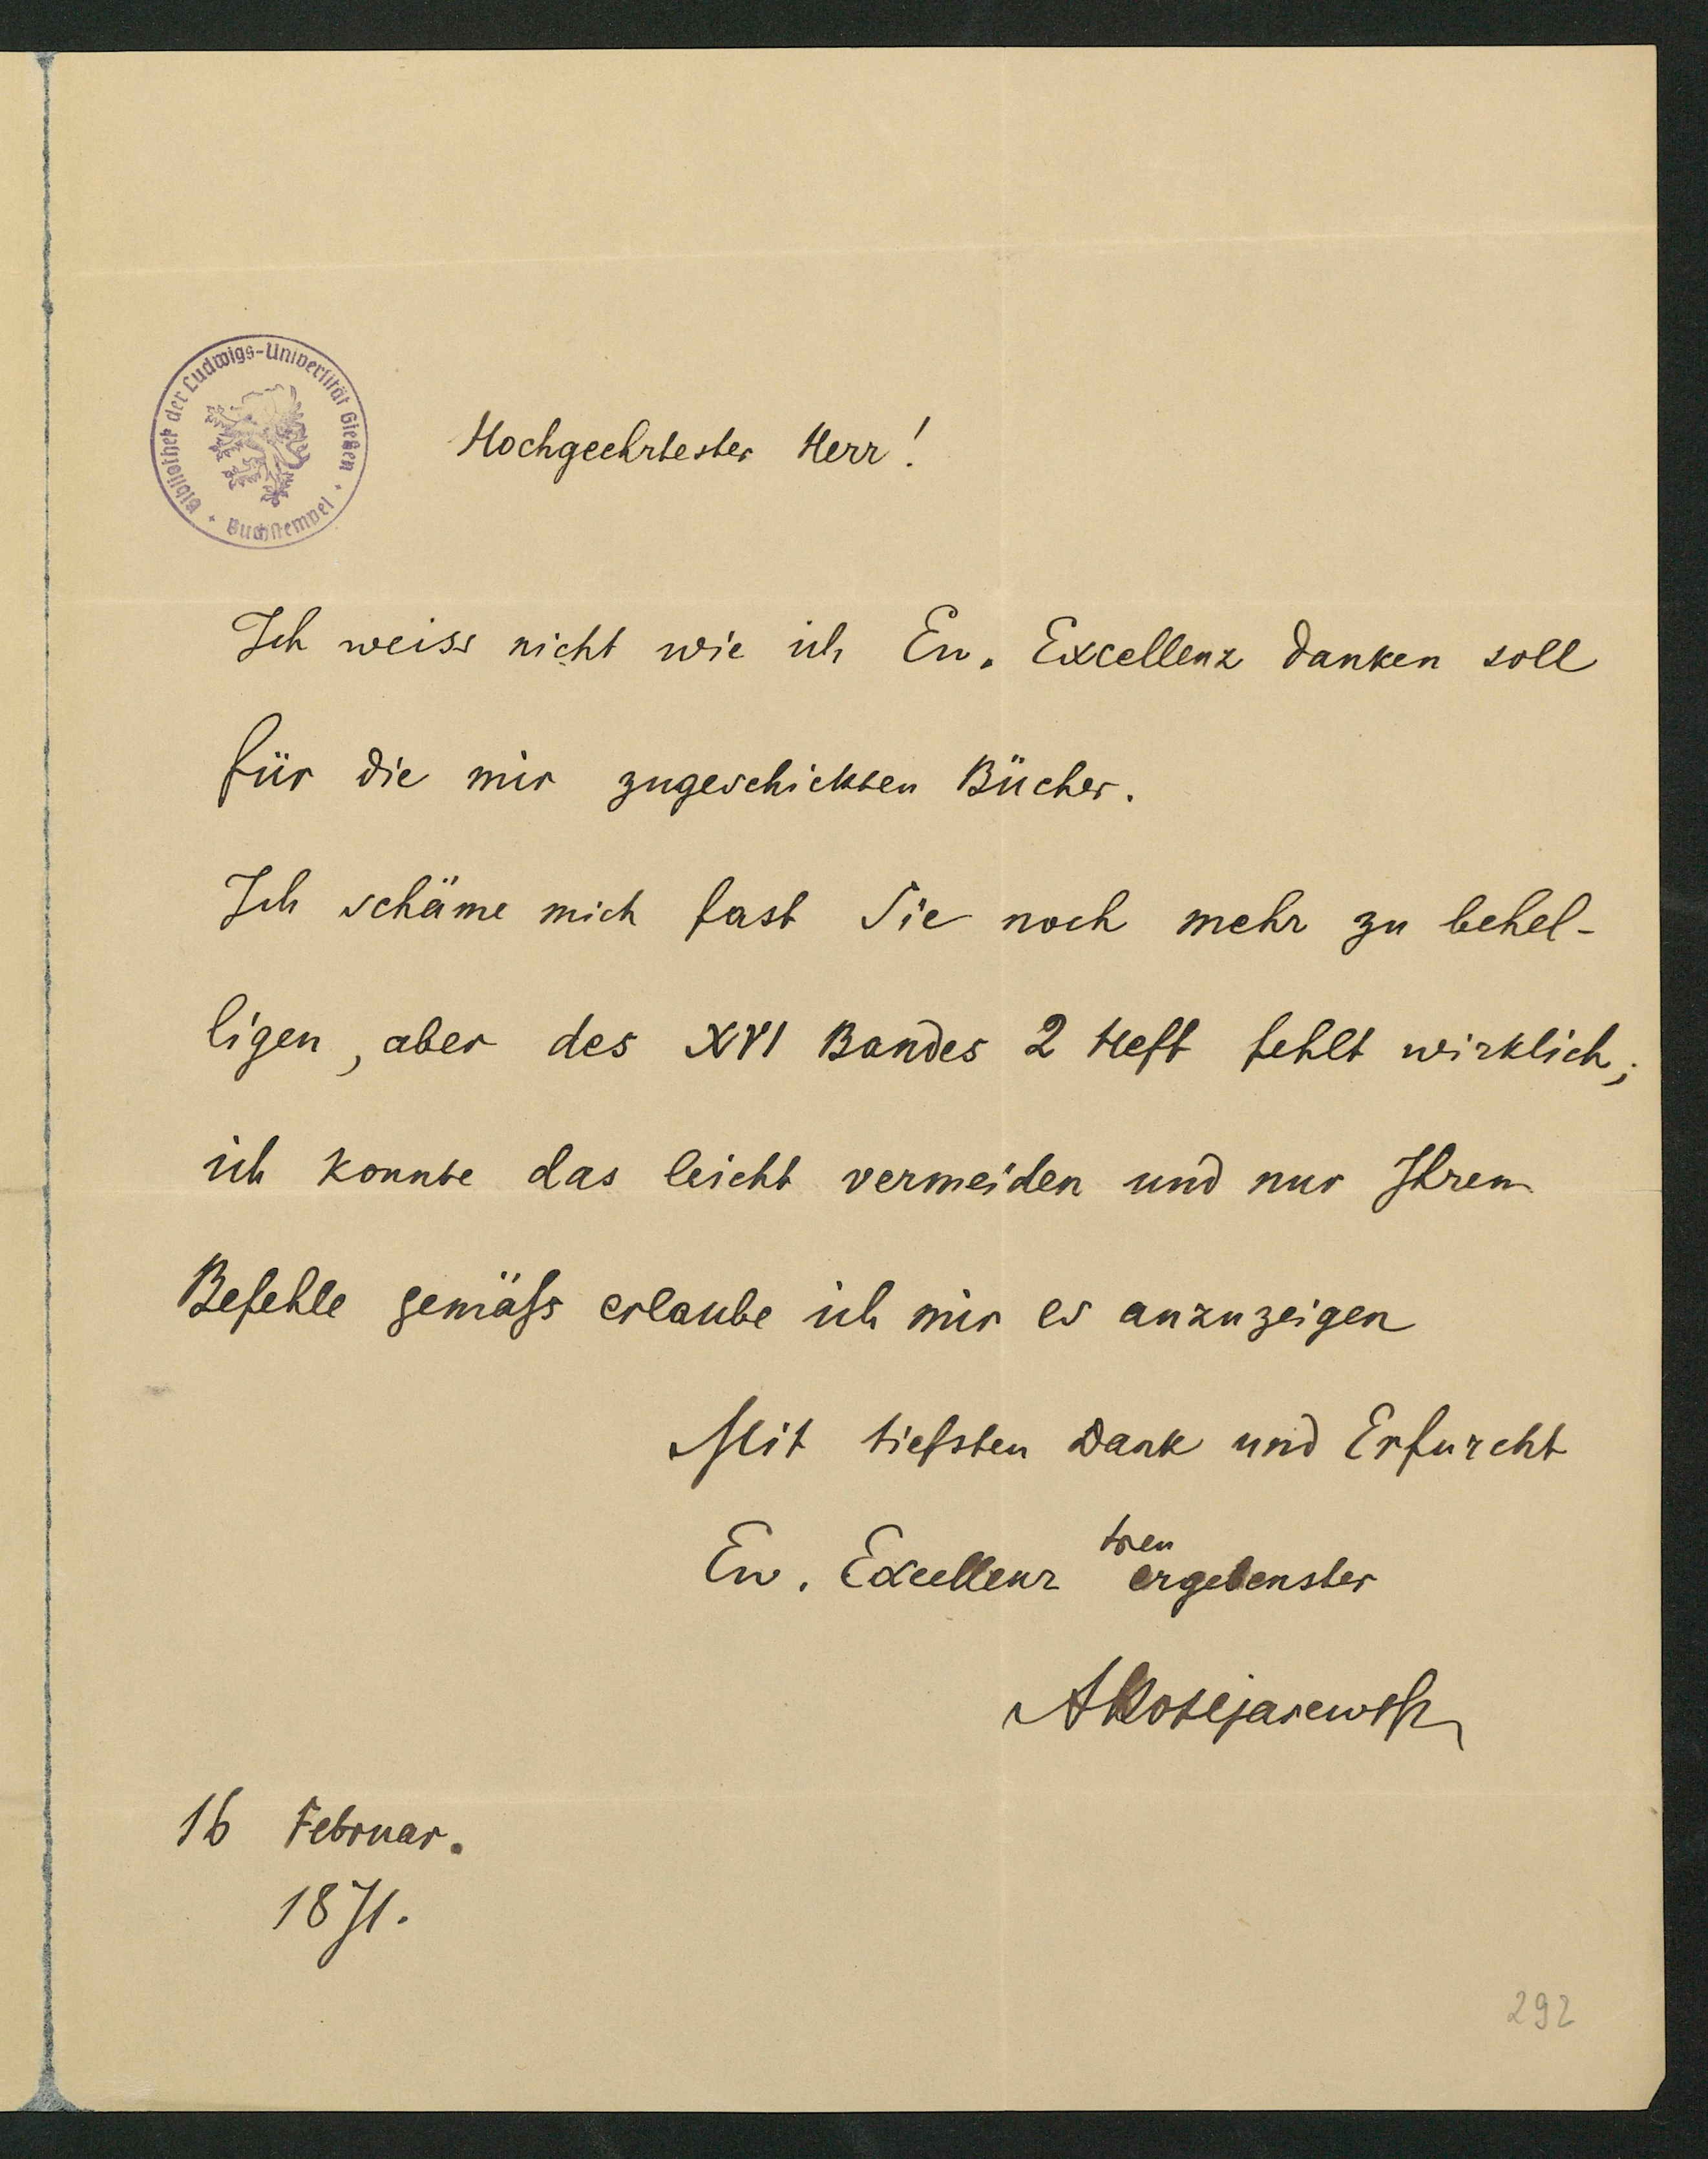 Bibliothek der Ludwigs-Universität Gießen
Buchstempel
Hochgeehrtester Herr!
Ich weiss nicht wie ich Ew. Excellenz danken soll
für die mir zugeschickten Bücher.
Ich schäme mich fast Sie noch mehr zu behel-
ligen, aber des XVI Bandes 2 Heft fehlt wirklich;
ich konnte das leicht vermeiden und nur Ihrem
Befehle gemäss erlaube ich mir es anzuzeigen
Mit tiefsten Dank und Erfurcht
treu
Ew. Excellenz ergebenster
16 Februar.
1871.
292